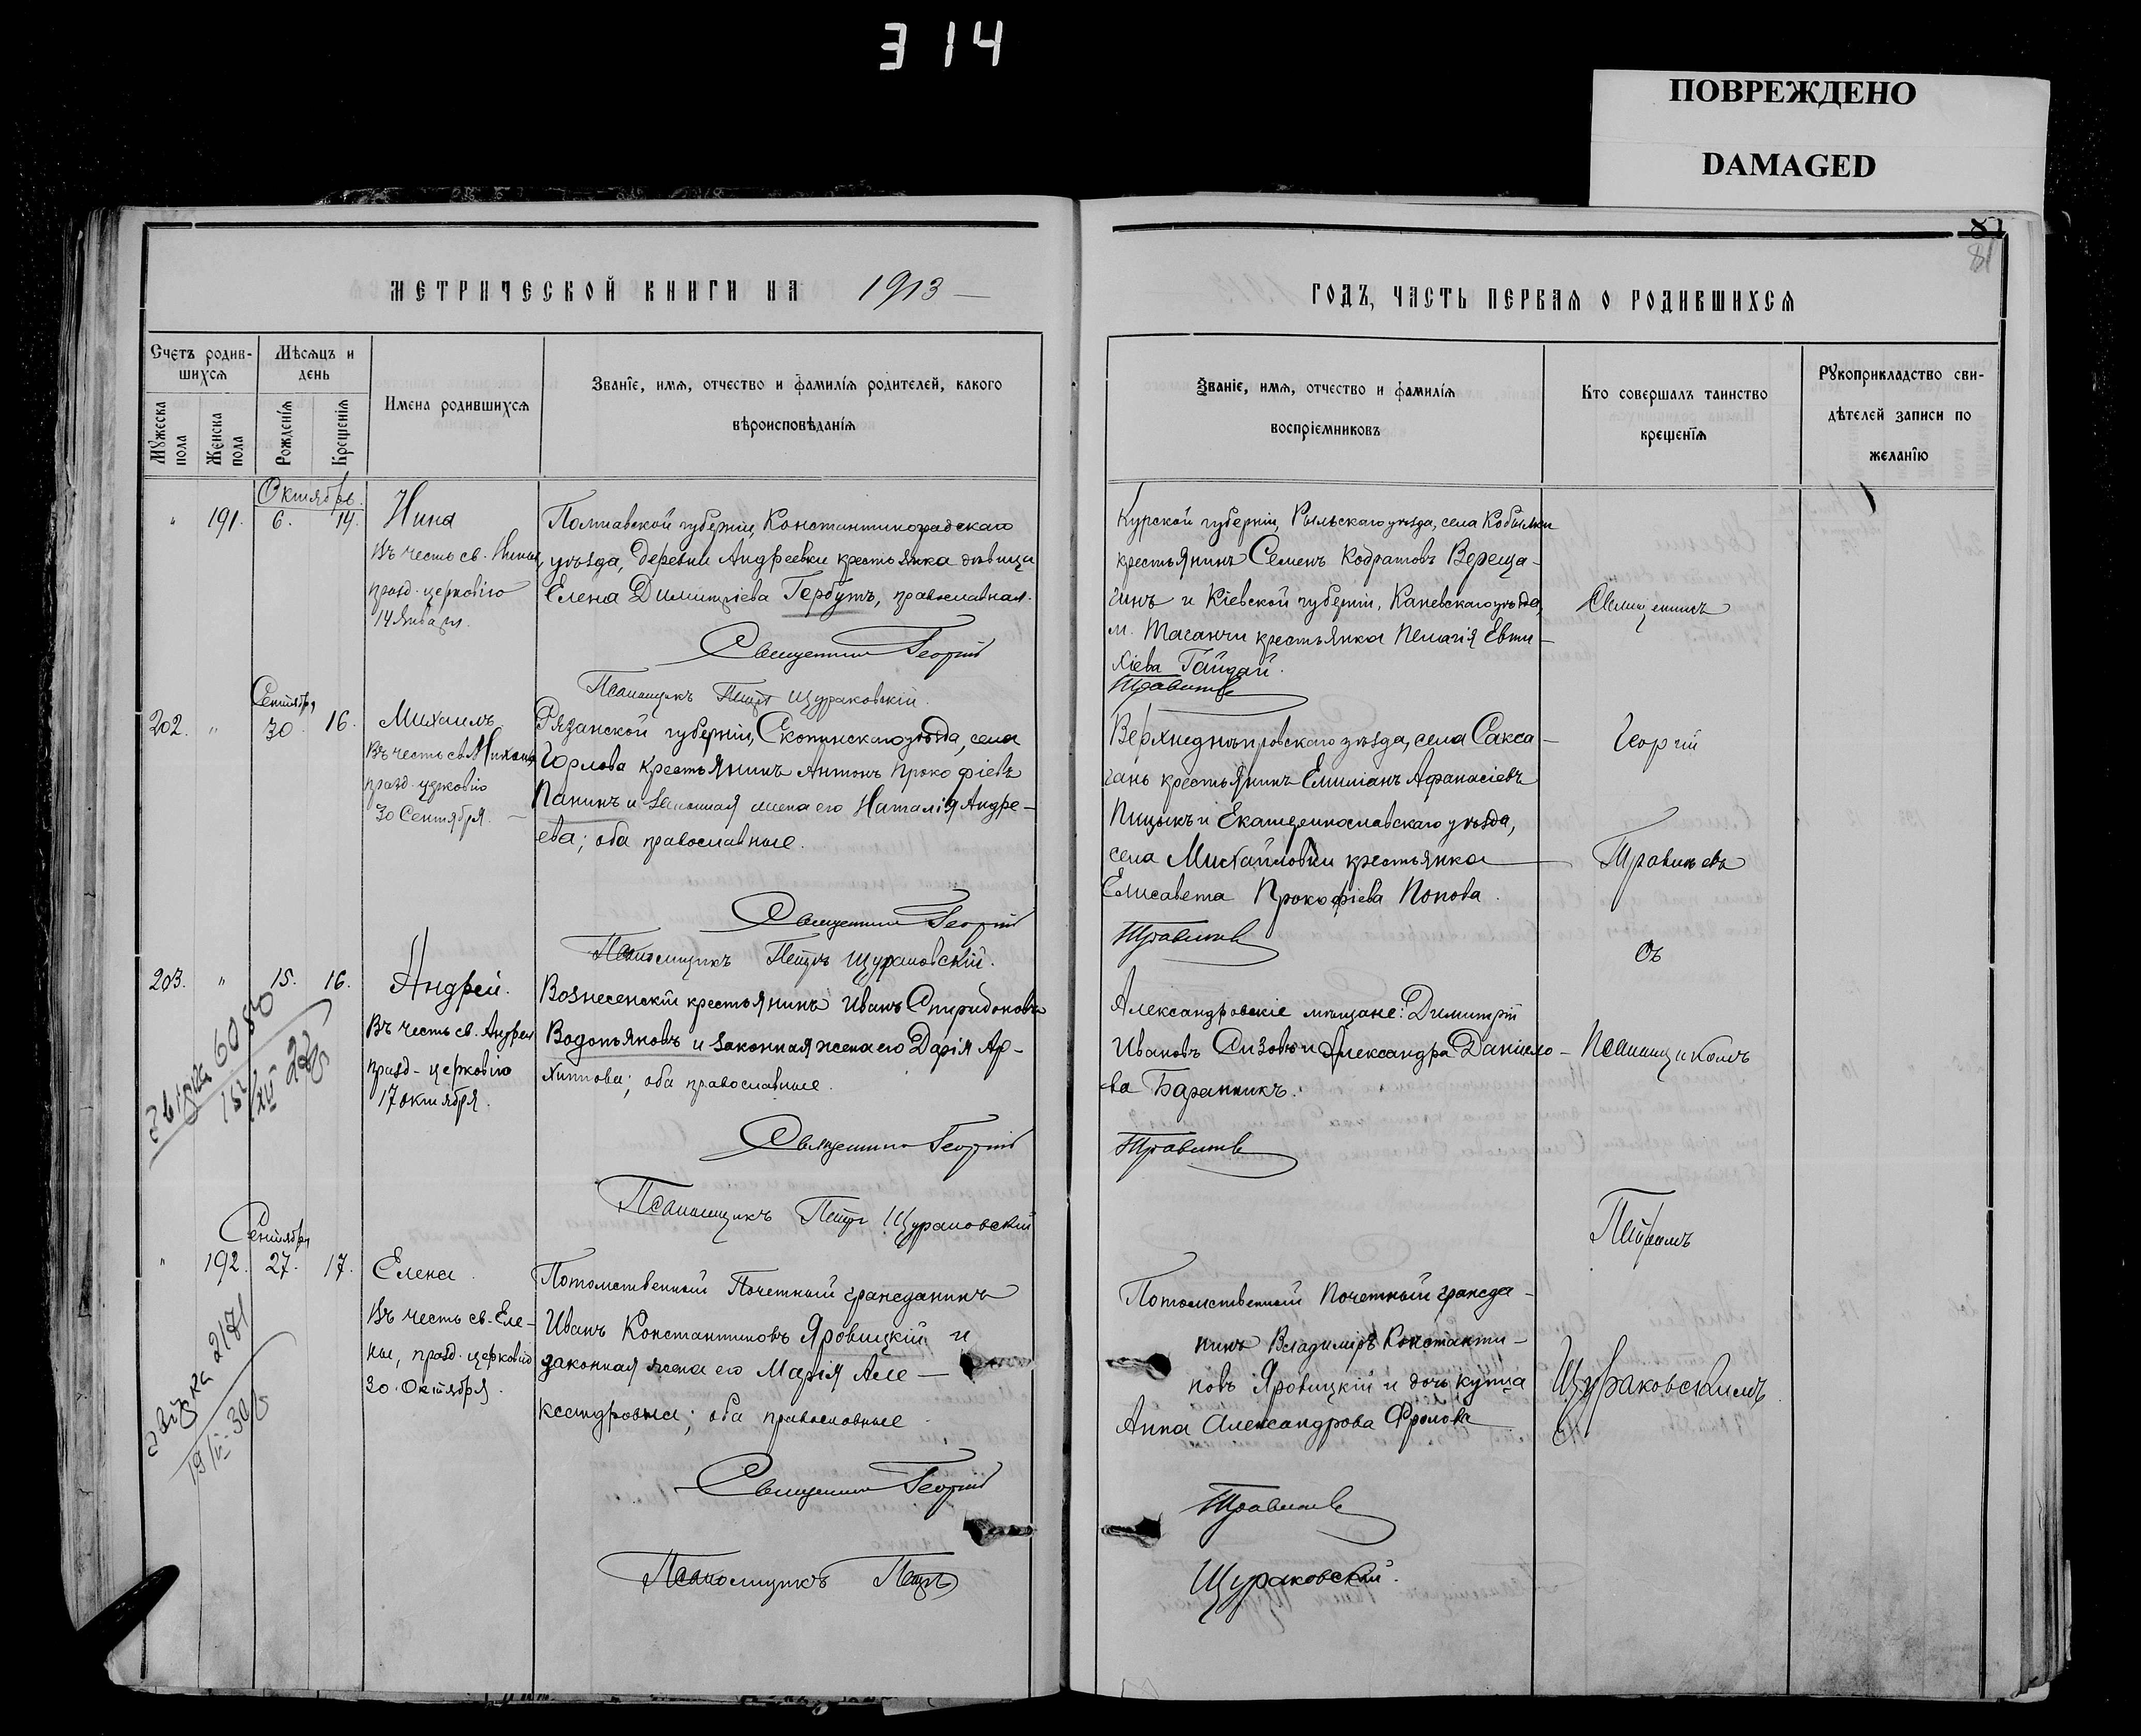 314
ПОВРЕЖДЕНО
DAMAGED
81
81
МЕТРИЧЕСКОЙ КНИГИ НА 1913
ГОДЪ, ЧАСТЬ ПЕРВАЯ О РОДИВШИХСЯ
Счетъ родив-
шихся
Мужеска
пола
Женска
пола
Мѣсяцъ и
день
Рожденія
Крещенія
Имена родившихся
Званіе, имя, отчество и фамилія родителей, какого
вѣроисповѣданія
Званіе, имя, отчество и фамилія
воспріемниковъ
Кто совершалъ таинство
крещенія
Рукоприкладство сви-
дѣтелей записи по
желанію
Октябрь
" 191. 6. 14.
Нина
Въ честь св. Нины,
празд. церковію
14 Января.
Полтавской губерніи, Константиноградскаго
уѣзда, деревни Андреевки крестьянка дѣвица
Елена Димитріева Гербутъ, православная.
Священникъ Георгій
Псаломщикъ Петръ Щураковскій.
Курской губерніи, Рыльскаго уѣзда, села Кобылки
крестьянинъ Семенъ Кодратовъ Вереща-
гинъ и Кіевской губерніи, Каневскаго уѣзда,
м. Таганчи крестьянка Пелагія Евти-
хіева Гайдай.
Травинъ
Сентября
202. " 30. 16.
Михаилъ
Въ честь св. Михаила
празд. церковію
30 Сентября.
Рязанской губерніи, Скопинскаго уѣзда, села
Горлова крестьянинъ Антонъ Прокофіевъ
Панинъ и законная жена его Наталія Андре-
ева; оба православные.
Священникъ Георгій
Псаломщикъ Петръ Щураковскій.
Верхнеднѣпровскаго уѣзда, села Сакса-
гань крестьянинъ Емиліанъ Афанасіевъ
Пицыкъ и Екатеринославскаго уѣзда,
села Михайловки крестьянка
Елисавета Прокофіева Попова.
203. " 15. 16.
Андрей.
Въ честь св. Андрея
празд. церковію
17 октября.
Вознесенскій крестьянинъ Иванъ Спиридоновъ
Водопьяновъ и законная жена его Дарія Ар-
хипова; оба православные.
Священникъ Георгій
Псаломщикъ Петръ Щураковскій
Александровскіе мѣщане: Димитрій
Ивановъ Сизовъ и Александра Даніило-
ва Баранникъ.
Сентября
" 192. 27. 17.
Елена.
Въ честь св. Еле-
ны, празд. церковію
30 Октября.
Потомственный Почетный гражданинъ
Иванъ Константиновъ Яровицкій и
законная жена его Марія Але-
ксандровна; оба православные.
Священникъ Георгій
Псаломщикъ Петръ
Потомственный Почетный гражда-
нинъ Владимиръ Константи-
новъ Яровицкій и дочь купца
Анна Александрова Фролова
Щураковскій.
Священникъ
Георгій
съ
Псаломщикомъ
Петромъ
Щураковскимъ.